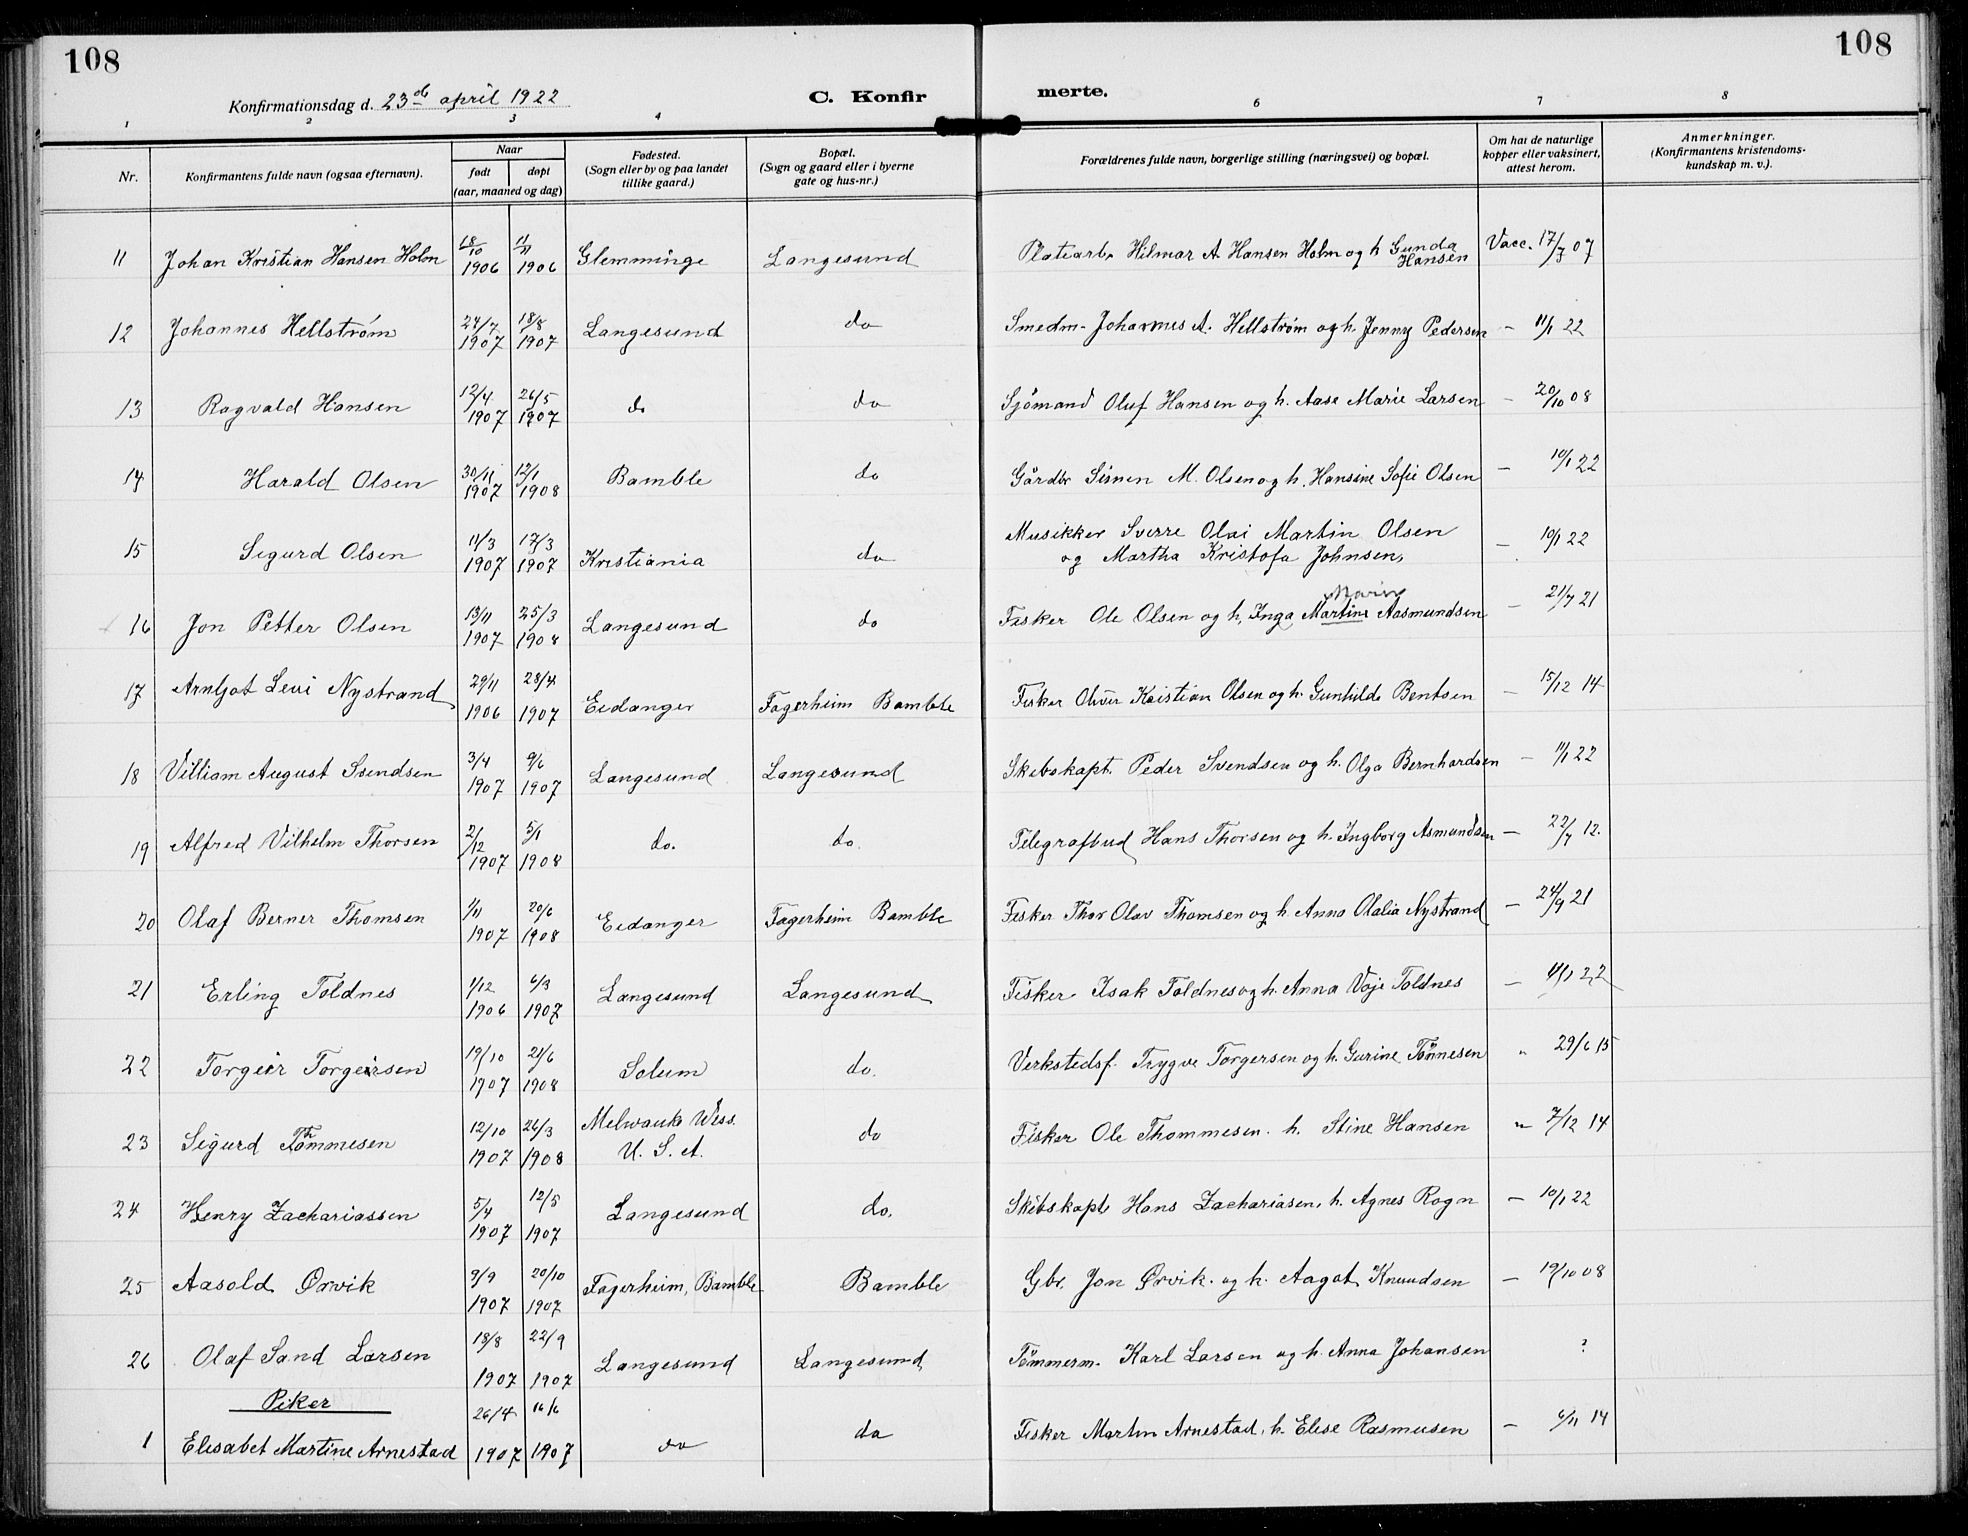 108
108
Konfirmationsdag d. 23de april 1922
C. Konfir
merte.
1 2 3 4 6 7 8
Nr.
Konfirmantens fulde navn (ogsaa efternavn).
Naar
født døpt
(aar, maaned og dag)
Fødested.
(Sogn eller by og paa landet
tillike gaard.)
Bopæl.
(Sogn og gaard eller i byerne
gate og hus-nr.)
Forældrenes fulde navn, borgerlige stilling (næringsvei) og bopæl.
Om har de naturlige
kopper eller vaksinert,
attest herom.
Anmerkninger.
(Konfirmantens kristendoms-
kundskap m. v.).
11 Johan Kristian Hansen Holm 18/10 1906 11/11 1906 Glemminge Langesund Platearb. Hilmar A. Hansen Holm og h. Gunda Hansen Vacc. 17/3 07
12 Johannes Hellstrøm 24/7 1907 18/8 1907 Langesund do Smedm. Johannes A. Hellstrøm og h. Jenny Pedersen — 11/1 22
13 Ragvald Hansen 12/4 1907 26/5 1907 do do Sjömand Oluf Hansen og h. Aase Marie Larsen — 20/10 08
14 Harald Olsen 30/11 1907 12/1 1908 Bamble do Gårdbr. Simen M. Olsen og h. Hansine Sofie Olsen — 10/1 22
15 Sigurd Olsen 11/3 1907 17/3 1907 Kristiania do Musikker Sverre Olai Martin Olsen
og Martha Kristofa Johnsen, — 10/1 22
16 Jon Petter Olsen 13/11 1907 25/3 1908 Langesund do Fisker Ole Olsen og h, Inga Martine Marie Aasmundsen — 21/7 21
17 Arnljot Levi Nystrand 29/11 1906 28/4 1907 Eidanger Fagerheim Bamble Fisker Oliver Kristian Olsen og h. Gunhilde Bentsen — 15/12 14
18 Villiam August Svendsen 3/4 1907 9/6 1907 Langesund Langesund Skibskapt. Peder Svendsen og h. Olga Bernhardsen — 11/1 22
19 Alfred Vilhelm Thorsen 2/12 1907 5/1 1908 do. do. Telegrafbud Hans Thorsen og h. Ingborg Asmundsen — 22/7 12.
20 Olaf Berner Thomsen 1/11 1907 20/6 1908 Eidanger Fagerheim Bamble Fisker Thor Olav Thomsen og h. Anna Olalia Nystrand — 24/9 21
21 Erling Toldnes 1/12 1906 6/3 1907 Langesund Langesund Fisker Isak Toldnes og h. Anna Voje Toldnes — 11/1 22
22 Torgeir Torgeirsen 19/10 1907 21/6 1908 Solum do. Verkstedsf. Trygve Torgersen og h. Gurine Tönnesen " 29/6 15
23 Sigurd Thommesen 12/10 1907 26/3 1908 Melwauke Wiss. U. S. A. do Fisker Ole Thommesen. h. Stine Hansen " 7/12 14
24 Henry Zachariassen 5/4 1907 12/5 1907 Langesund do. Skibskapt. Hans Zachariasen, h. Agnes Rogn — 10/1 22
25 Aasold Ørvik 9/9 1907 20/10 1907 Fagerheim, Bamble Bamble Gbr. Jon Ørvik. og h. Aagot Knuudsen — 19/10 08
26 Olaf Sand Larsen 18/8 1907 22/9 1907 Langesund Langesund Tömmerm. Karl Larsen og h. Anna Johansen ?
Piker
1 Elisabet Martine Arnestad 26/4 1907 16/6 1907 do do Fisker Martin Arnestad, h. Elise Rasmusen — 6/11 14